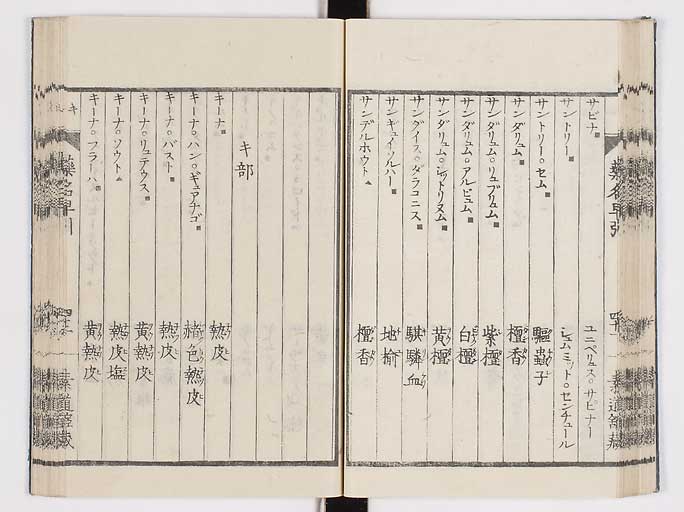 サビナ ユニペリュス。サビナー
サントリー シュムミット。センチュール
サントリー。セム 驅蟲子
サンダリュム 檀香
サンダリュム。リュブリュム 紫檀
サンダリュム。アルビュム 白檀
サンダリュム。シットリヌム 黄檀
サングイス。ダラコニス 騏驎血
サンキュイソルハー 地榆
サンデルホウト 檀香
キ部
キーナ 熱皮
キーナ。ハン。ギュアナゴ 赭色熱皮
キーナ。バスト 熱皮
キーナ。リュテウス 黄熱皮
キーナ。ソウト 熱皮塩
キーナ。フラーハ 黄熱皮